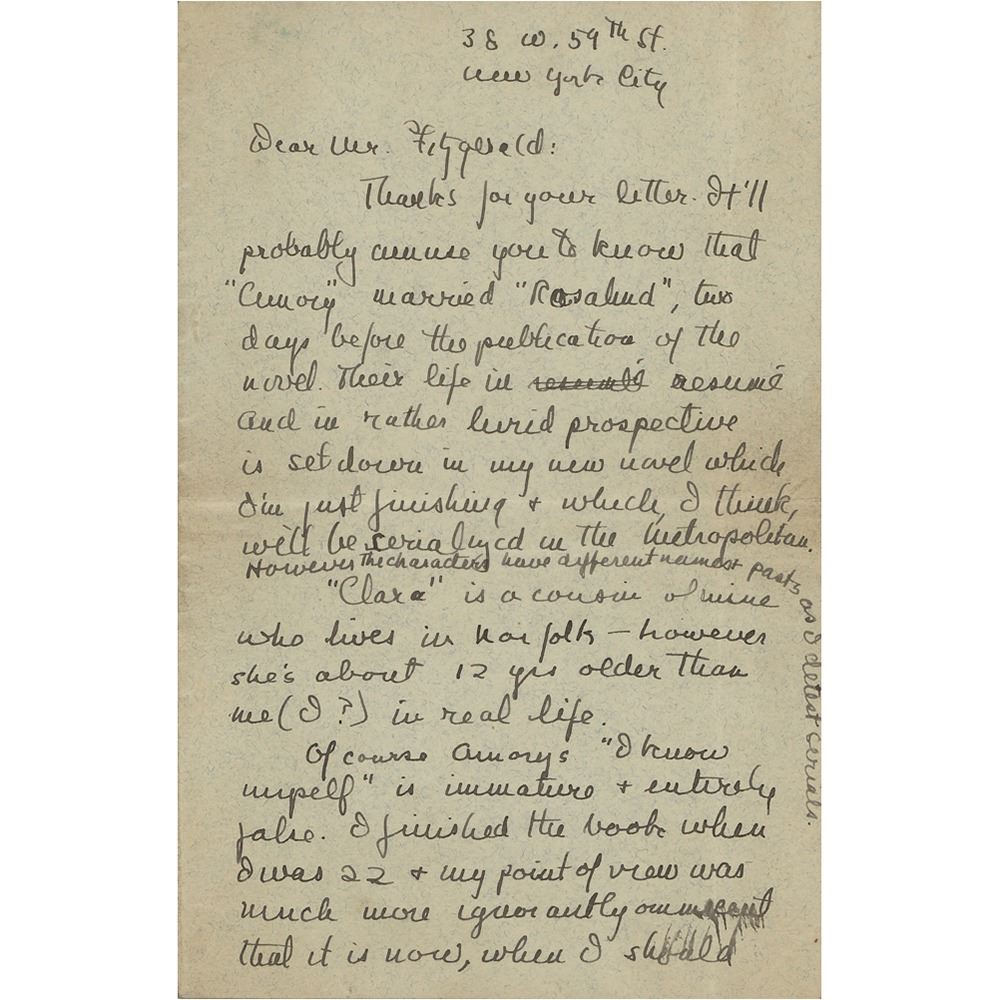 38 W. 59th St.
New York City
Dear Mr. Fitzgerald:
Thanks for your letter. It'll
probably amuse you to know that
"Amory" married "Rosalind", two
days before the publication of the
novel. Their life in resumé
and in rather lurid prospective
is set down in my new novel which
I'm just finishing + which, I think,
will be serialized in the Metropolitan.
However the characters have different names + pasts
as I detest serials.
"Clara" is a cousin of mine
who lives in Norfolk — however
she's about 12 yrs older than
me (I?) in real life.
Of course Amorys "I know
myself" is immature + entirely
false. I finished the book when
I was 22 + my point of view was
much more ignorantly omniscent
that it is now, when I should